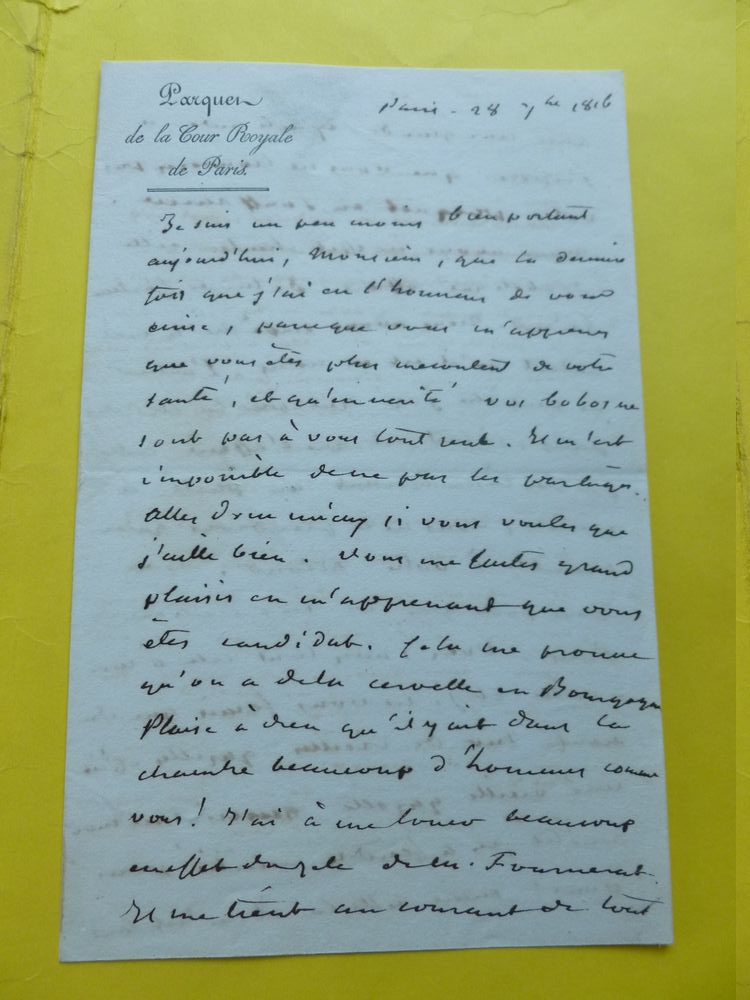 Parquet
de la Cour Royale
de Paris.
Paris - 28 7bre 1816
Je suis un peu moins bien portant
aujourd'hui, Monsieur, que la derniere
fois que j'ai eu l'honneur de vous
ecrire, parceque vous m'apprenez
que vous êtes plus mecontent de votre
santé, et qu'en verité vos bobos ne
sont pas à vous tout seul. Il m'est
impossible de ne pas les partager.
Allez donc mieux si vous voulez que
j'aille bien. Vous me faites grand
plaisir en m'apprenant que vous
êtes candidat. Cela me prouve
qu'on a de la cervelle en Bourgogne
Plaise à dieu qu'il y ait dans la
chambre beaucoup d'hommes comme
vous! J'ai à me louer beaucoup
en effet du zele de m. Fournerat.
Il me tient au courant de tout